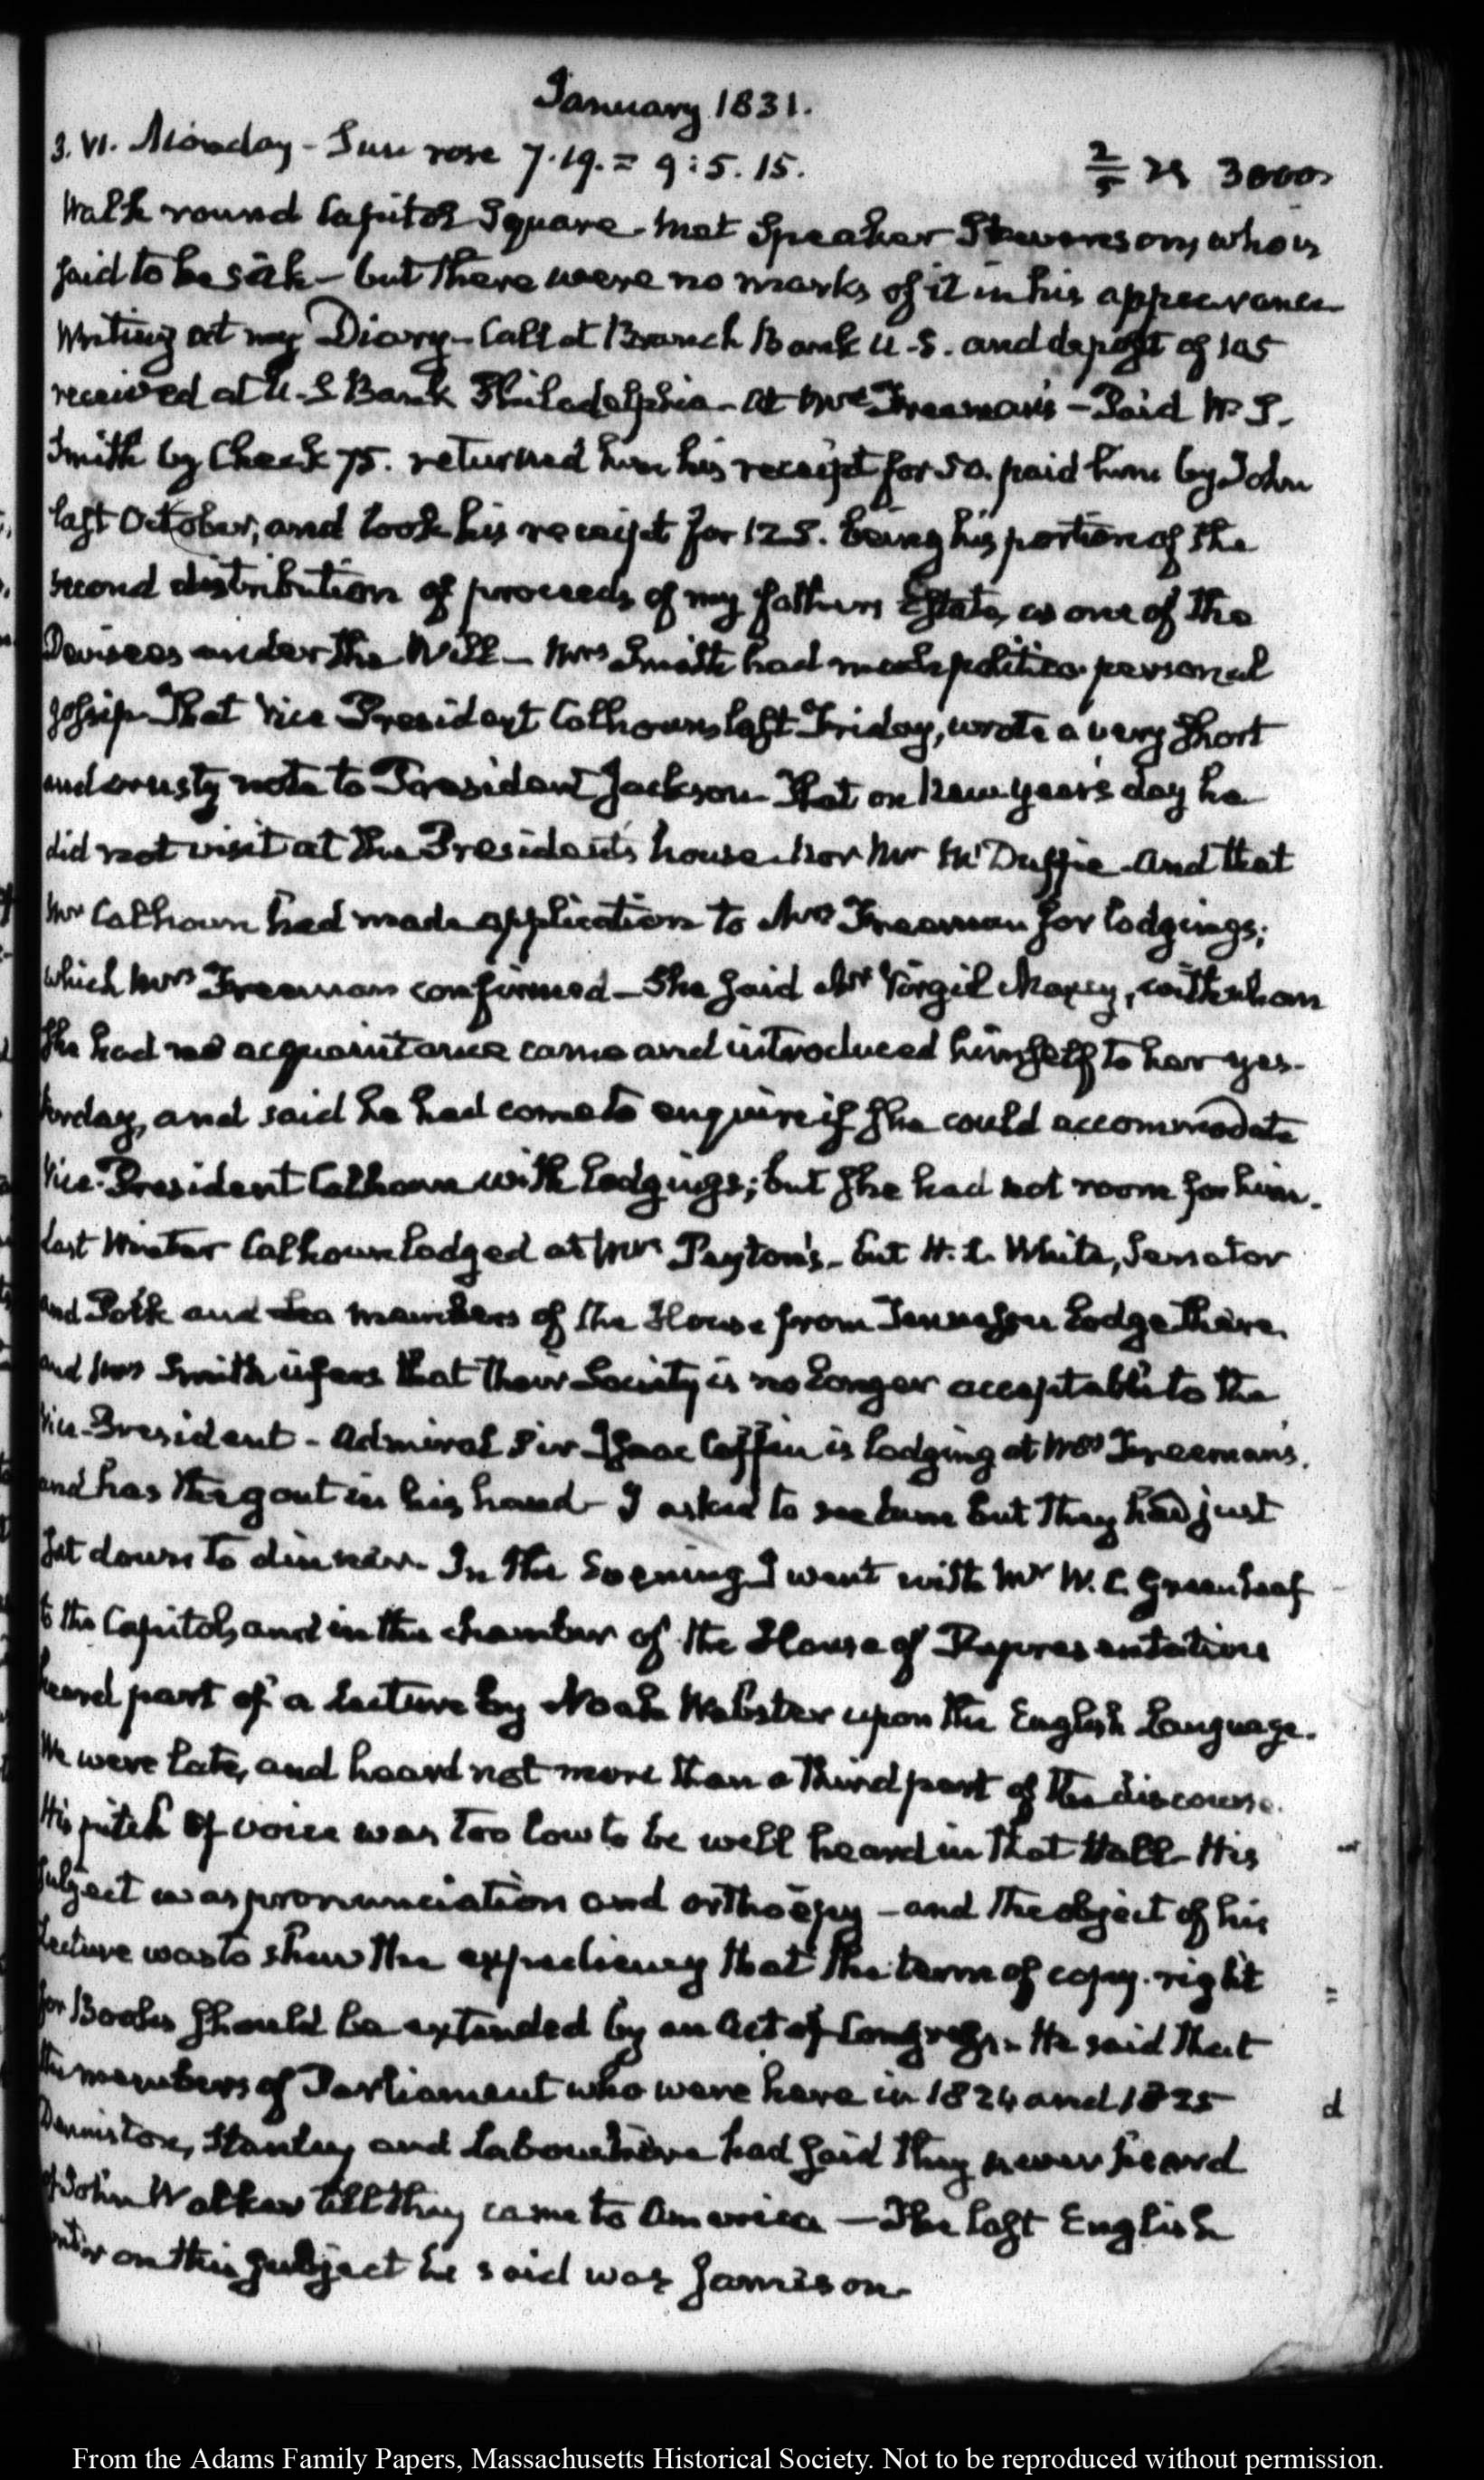 January 1831.
3. VI. Monday - Sun rose 7.19. = 9:5.15.
Walk round Capitol Square. Met Speaker Stevenson, who is
said to be sick - but there were no marks of it in his appearance
Writing at my Diary - Call at Branch Bank U.S. and deposit of 105
received at U.S Bank Philadelphia - At Mrs Freeman's - Paid W. S.
Smith by Check 75. returned him his receipt for 50. paid him by John
last October, and took his receipt for 125. being his portion of the
second distribution of proceeds of my fathers Estate, as one of the
Devisees under the Will - Mrs Smith had much politico personal
gossip. That Vice President Calhoun, last Friday, wrote a very short
and crusty note to President Jackson. That on New year's day he
did not visit at the President's house. Nor Mr McDuffie - And that
Mr Calhoun had made application to Mrs Freeman for lodgings;
which Mrs Freeman confirmed - She said Mr Virgil Maxcy, with whom
she had no acquaintance came and introduced himself to her yes-
terday, and said he had come to enquire if she could accommodate
Vice-President Calhoun with lodgings; but she had not room for him.
Last Winter Calhoun lodged at Mrs Peyton's - but H. L. White, Senator
and Polk and Lea members of the House from Tennessee lodge there,
and Mrs Smith infers that their Society is no longer acceptable to the
Vice-President - Admiral Sir Isaac Coffin is lodging at Mrs Freeman's.
and has the gout in his hand - I asked to see him but they had just
set down to dinner. In the Evening I went with Mr W. C. Greenleaf
to the Capitol, and in the chamber of the House of Representatives
heard part of a lecture by Noah Webster upon the English Language.
We were late, and heard not more than a third part of the discourse.
His pitch of voice was too low to be well heard in that Hall - His
subject was pronunciation and orthoëpy - and the object of his
Lecture was to shew the expediency that the term of copy-right
for Books should be extended by an Act of Congress. He said that
the members of Parliament who were here in 1824 and 1825
Denniston, Stanley and Labouchere had said they never heard
of John Walker till they came to America - The last English
writer on this subject he said was Jamieson.
From the Adams Family Papers, Massachusetts Historical Society. Not to be reproduced without permission.